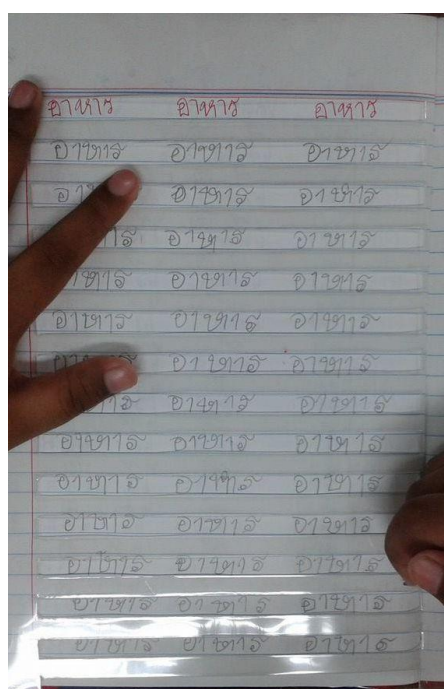 อาหาร อาหาร อาหาร
อาหาร อาหาร อาหาร
อาหาร อาหาร
อาหาร อาหาร
อาหาร อาหาร
อาหาร อาหาร อาหาร
อาหาร อาหาร
อาหาร อาหาร
อาหาร อาหาร อาหาร
อาหาร อาหาร อาหาร
อาหาร อาหาร อาหาร
อาหาร อาหาร อาหาร
อาหาร อาหาร อาหาร
อาหาร อาหาร อาหาร